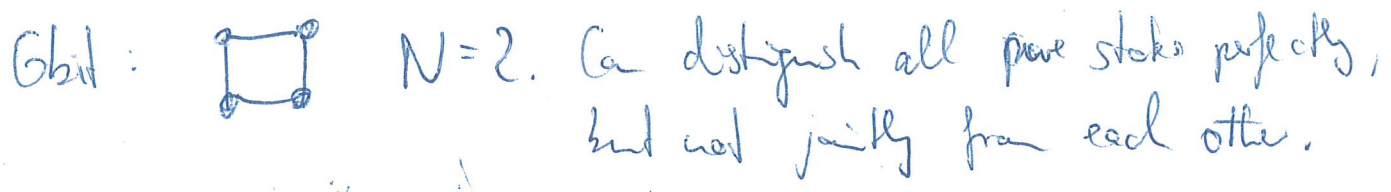 Gbit: N=2. Can distinguish all pure states perfectly,
but not jointly from each other.